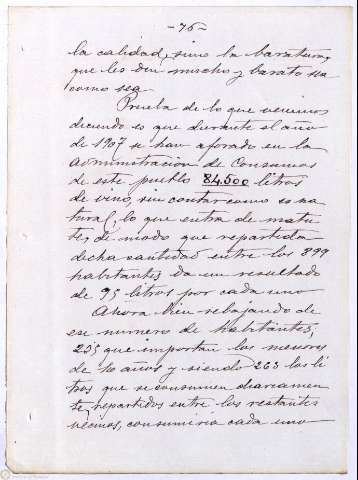 -76-
la calidad, sino la baratura,
que les den mucho y barato sea
como sea.
Prueba de lo que venimos
diciendo es que durante el año
de 1907 se han aforado en la
Administración de Consumos
de este pueblo 84.500 litros
de vino, sin contar como es na
tural, lo que entra de matu
te; de modo que repartida
dicha cantidad entre los 899
habitantes da un resultado
de 95 litros por cada uno
Ahora bien rebajando de
ese número de habitantes,
235 que importan los menores
de 10 años y siendo 263 los li
tros que se consumen diariamen
te, repartidos entre los restantes
vecinos, consumiría cada uno